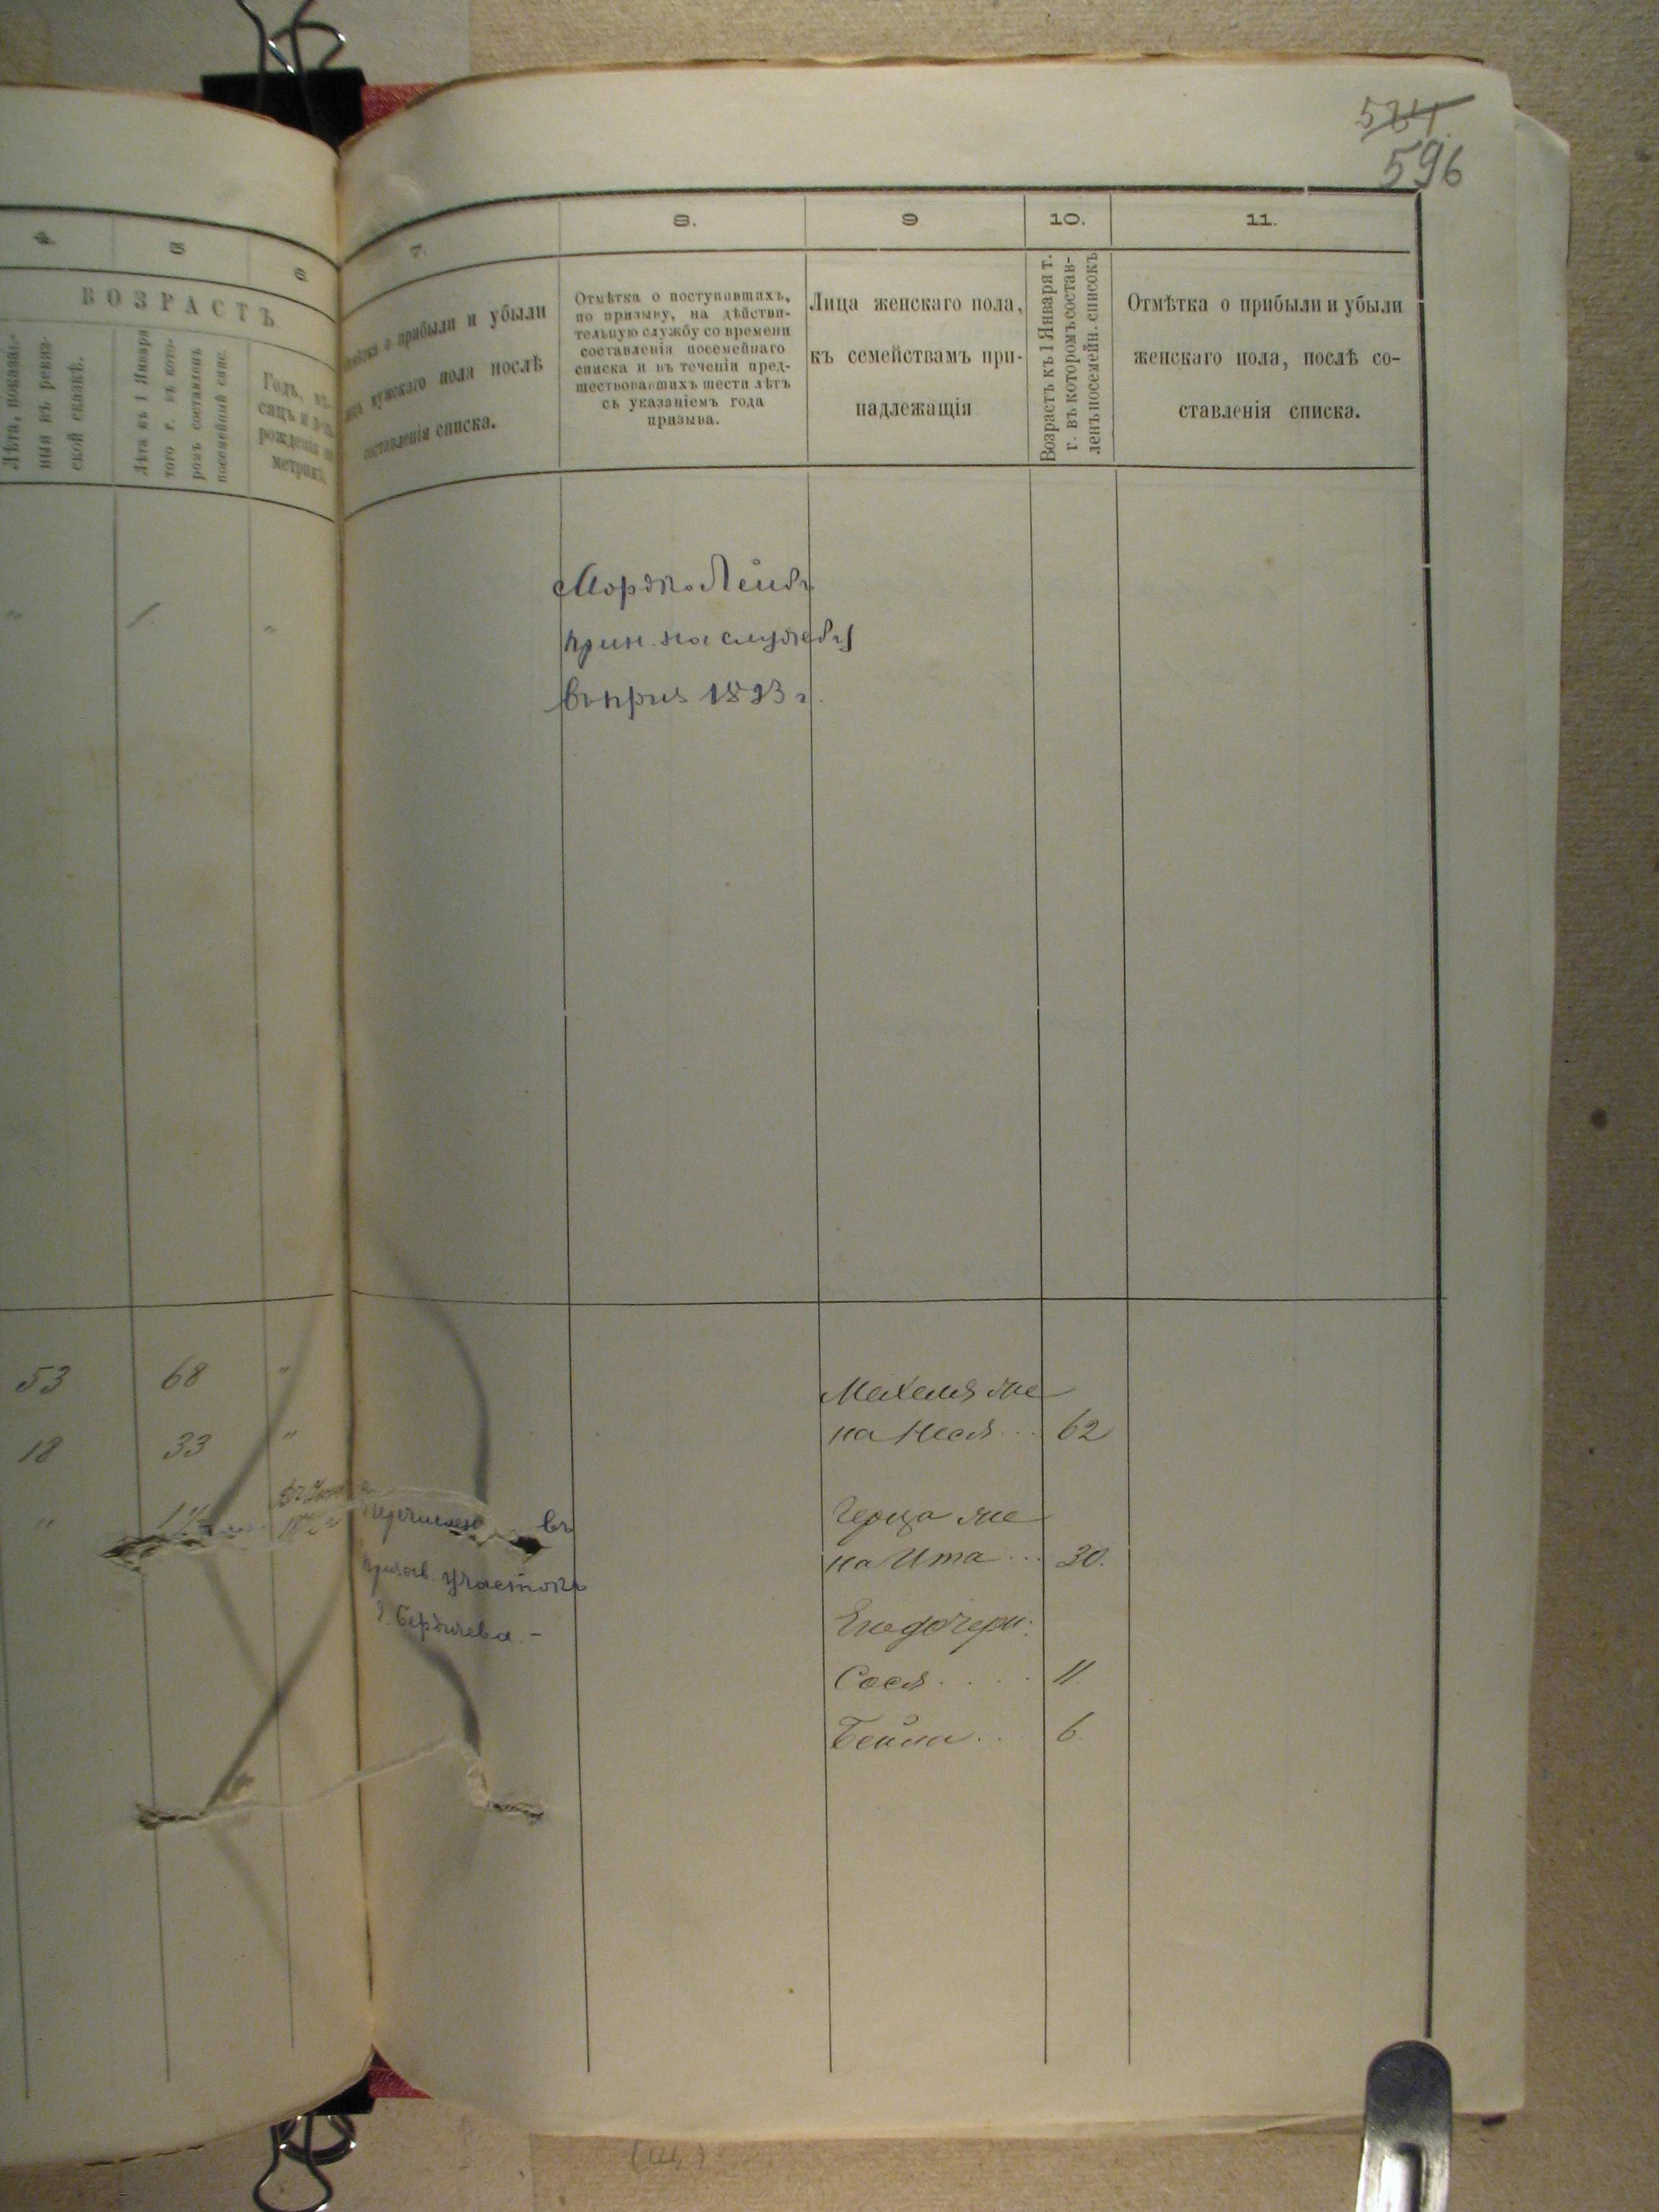 596
4.
5
6.
ВОЗРАСТЪ
Лѣта, показан-
ныя въ ревиз-
ской сказкѣ.
Лѣта къ 1 Января
того г. въ кото-
ромъ составленъ
посемейный спис.
Годъ, мѣ-
сяцъ и
рожденія по
метрикѣ.
7.
о прибыли и убыли
мужскаго пола послѣ
составленія списка.
8.
Отмѣтка о поступавшихъ,
по призыву, на дѣйстви-
тельную службу со времени
составленія посемейнаго
списка и въ теченіи пред-
шествовавшихъ шести лѣтъ
съ указаніемъ года
призыва.
9
Лица женскаго пола,
къ семействамъ при-
надлежащія
10.
Возрастъ къ 1 Января т.
г. въ которомъ состав-
ленъ посемейн. списокъ
11.
Отмѣтка о прибыли и убыли
женскаго пола, послѣ со-
ставленія списка.
Мордко Лейбъ
прин. на службу
въ 1893 г.
53 68 "
18 33 "
Перечисленъ въ
призыв. участокъ
г. Бердичева. -
Мехеля же
на Неся ... 62
Герша же
на Ита ... 30.
Его дочери:
Сося .... 11.
Бейла .. 6.